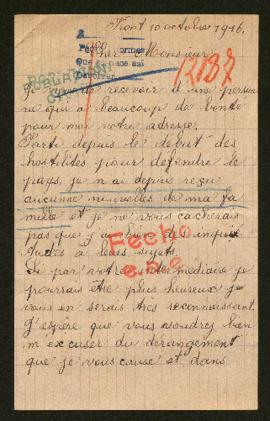 Front 10 octobre 1916.
Cher Monsieur
12187
Je viens de recevoir d'une person
ne qui a beaucoup de bonté
pour moi votre adresse.
Parti depuis le début des
hostilités pour défendre le
pays, je n'ai depuis reçu
aucune nouvelles de ma fa
mille et je ne vous cacherais
pas que j'ai bien des inquie
tudes à leurs sujets.
Fecho
Si par votre intermédiaire je
pourrais être plus heureux je
vous en serais très reconnaissant.
J'espère que vous voudrez bien
m'excuser du dérangement
que je vous cause et dans